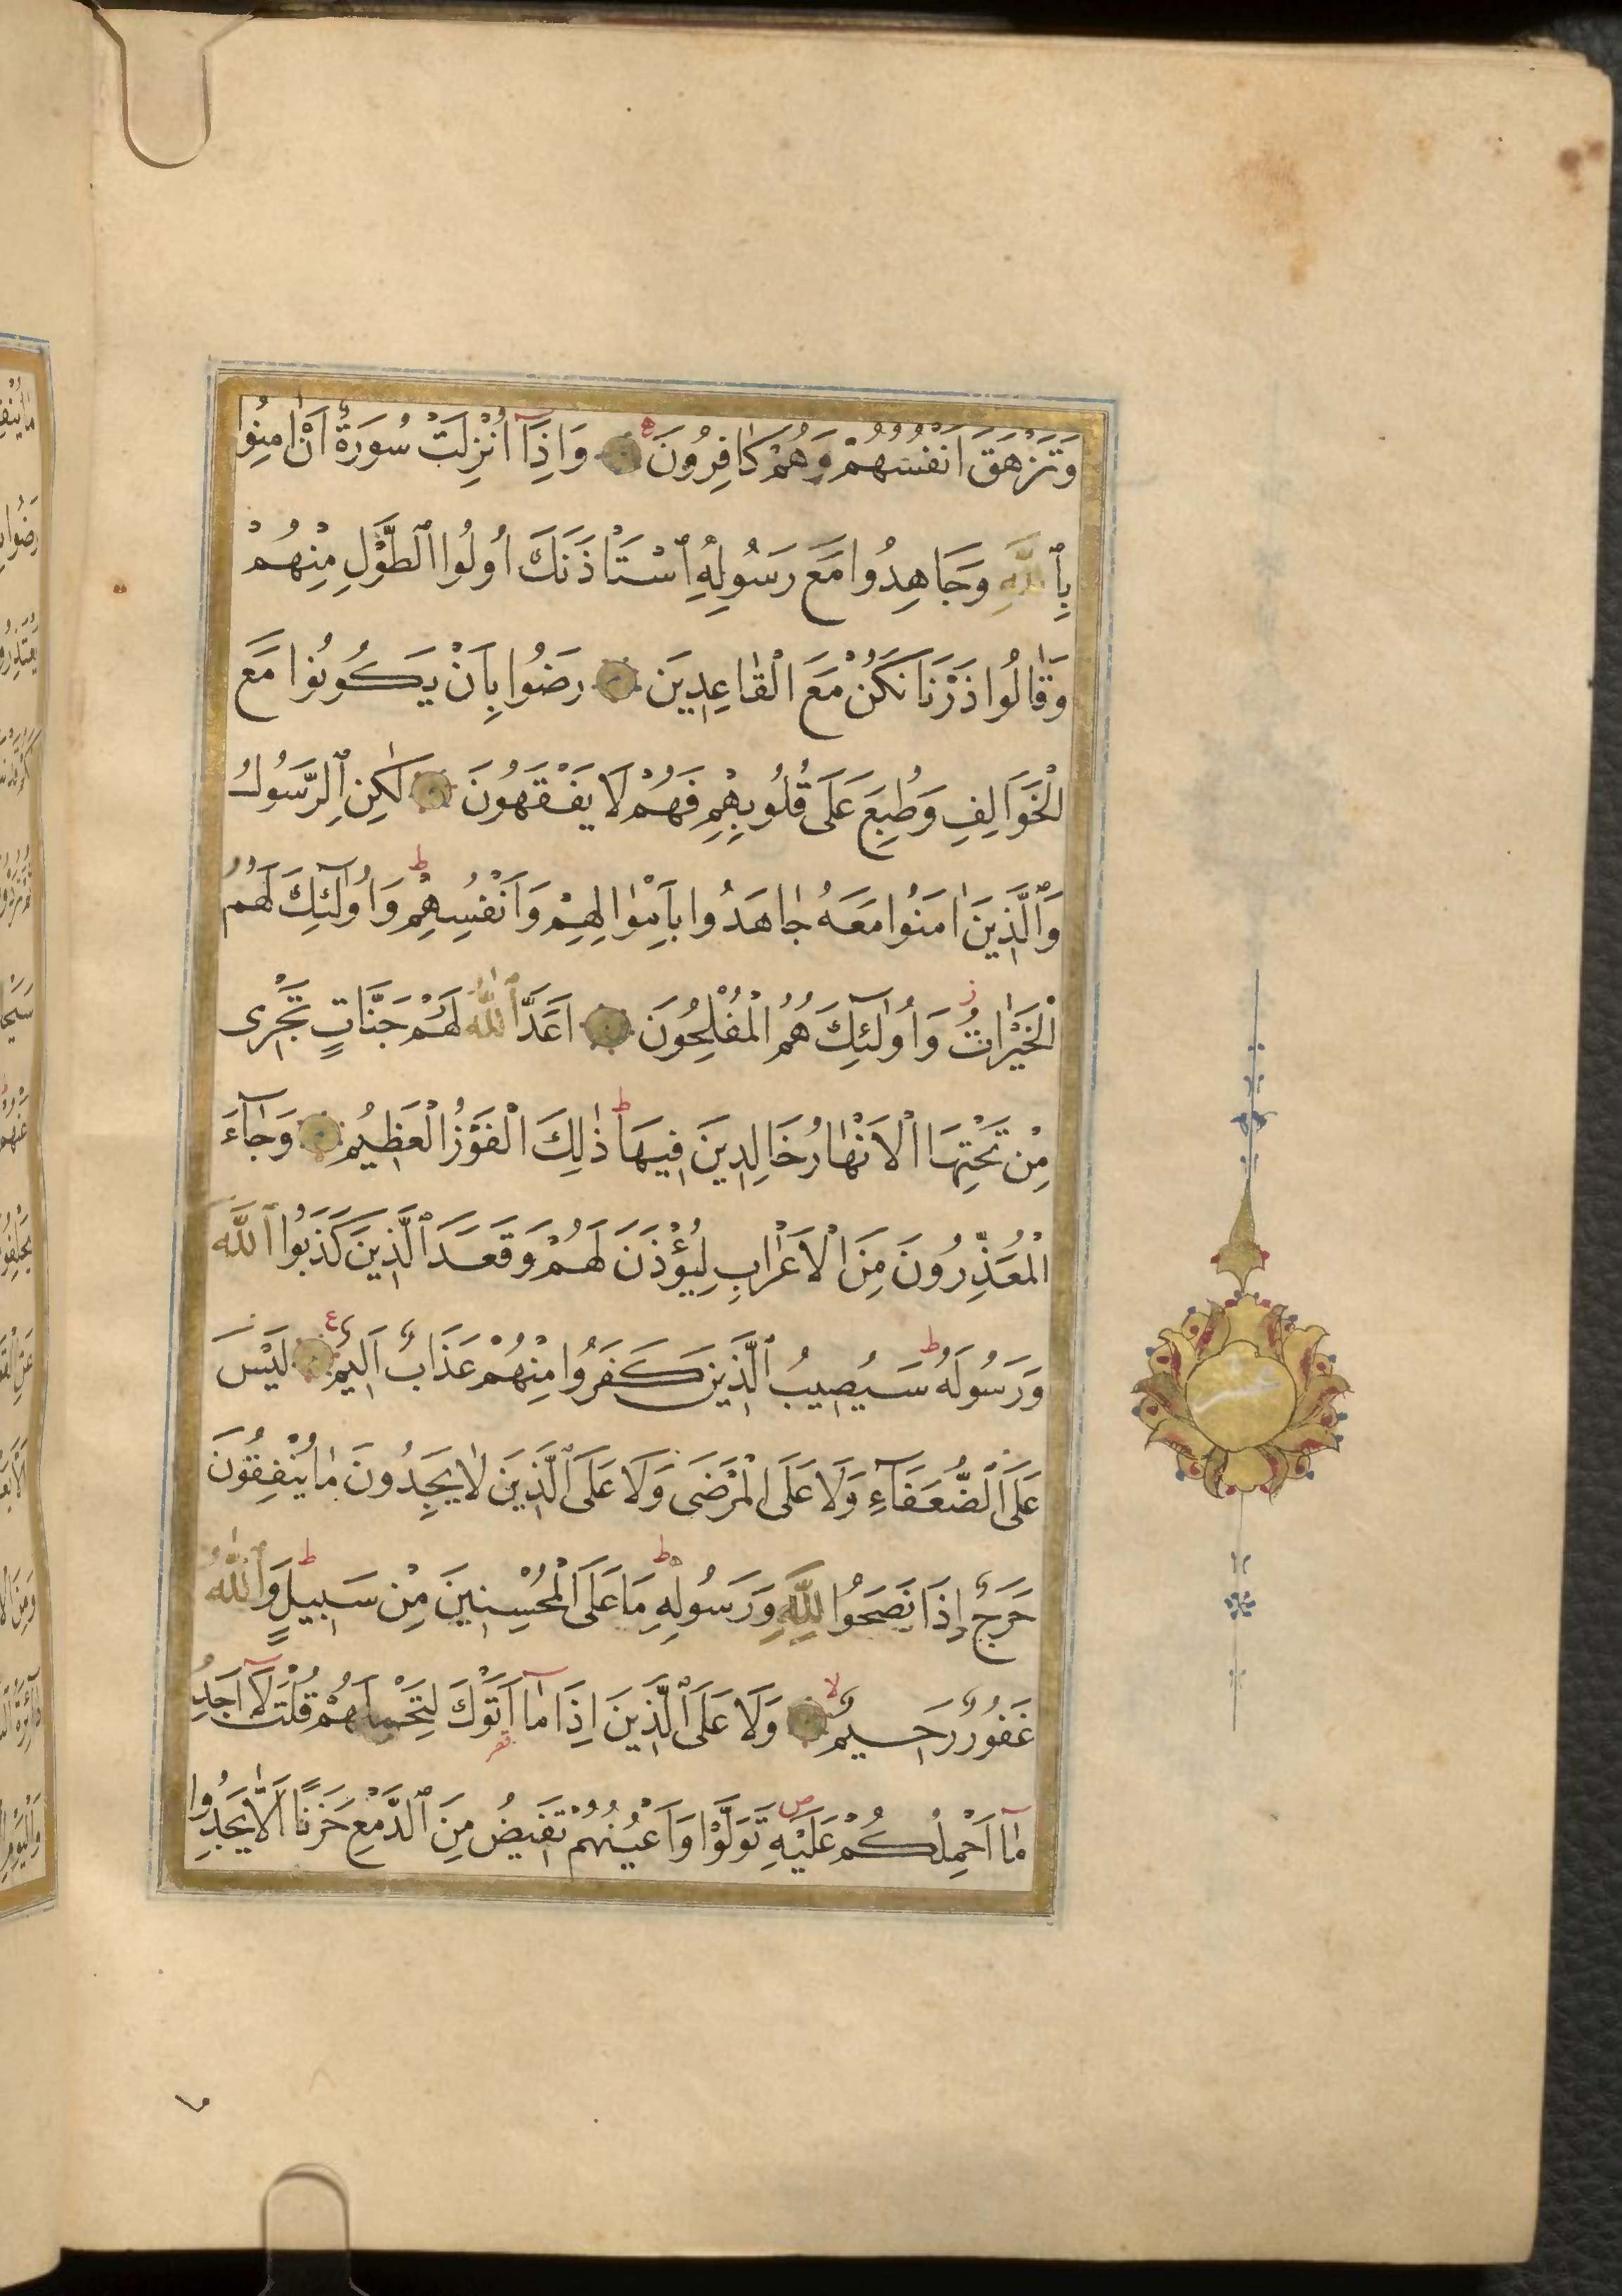 وَتَزْهَقَ اَنْفُسُهُمْ وَهُمْ كَافِرُونَ وَاِذَآ اُنْزِلَتْ سُورَةٌ اَنْ اٰمِنُوا
بِٱللّٰهِ وَجَاهِدُوا مَعَ رَسُولِهِ ٱسْتَاْذَنَكَ اُولُوا ٱلطَّوْلِ مِنْهُمْ
وَقَالُوا ذَرْنَا نَكُنْ مَعَ الْقَاعِدِينَ رَضُوا بِاَنْ يَكُونُوا مَعَ
الْخَوَالِفِ وَطُبِعَ عَلَى قُلُوبِهِمْ فَهُمْ لَا يَفْقَهُونَ لٰكِنِ ٱلرَّسُولُ
وَٱلَّذِينَ اٰمَنُوا مَعَهُ جَاهَدُوا بِاَمْوَالِهِمْ وَاَنْفُسِهِمْ ط وَاُولٰٓئِكَ لَهُمُ
الْخَيْرَاتُ ز وَاُولٰٓئِكَ هُمُ الْمُفْلِحُونَ اَعَدَّ ٱللّٰهُ لَهُمْ جَنَّاتٍ تَجْرِى
مِنْ تَحْتِهَا الْاَنْهَارُ خَالِدِينَ فِيهَا ط ذٰلِكَ الْفَوْزُ الْعَظِيمُ وَجَآءَ
الْمُعَذِّرُونَ مِنَ الْاَعْرَابِ لِيُؤْذَنَ لَهُمْ وَقَعَدَ ٱلَّذِينَ كَذَبُوا ٱللّٰهَ
وَرَسُولَهُ ط سَيُصِيبُ ٱلَّذِينَ كَفَرُوا مِنْهُمْ عَذَابٌ اَلِيمٌ ع لَيْسَ
عَلَى ٱلضُّعَفَآءِ وَلَا عَلَى الْمَرْضَى وَلَا عَلَى ٱلَّذِينَ لَا يَجِدُونَ مَا يُنْفِقُونَ
حَرَجٌ اِذَا نَصَحُوا لِلّٰهِ وَرَسُولِهِ ط مَا عَلَى الْمُحْسِنِينَ مِنْ سَبِيلٍ ط وَٱللّٰهُ
غَفُورٌ رَحِيمٌ لا وَلَا عَلَى ٱلَّذِينَ اِذَا مَآ اَتَوْكَ لِتَحْمِلَهُمْ قُلْتَ لَآ اَجِدُ
مَآ اَحْمِلُكُمْ عَلَيْهِ ص تَوَلَّوْا وَاَعْيُنُهُمْ تَفِيضُ مِنَ ٱلدَّمْعِ حَزَنًا اَلَّا يَجِدُوا